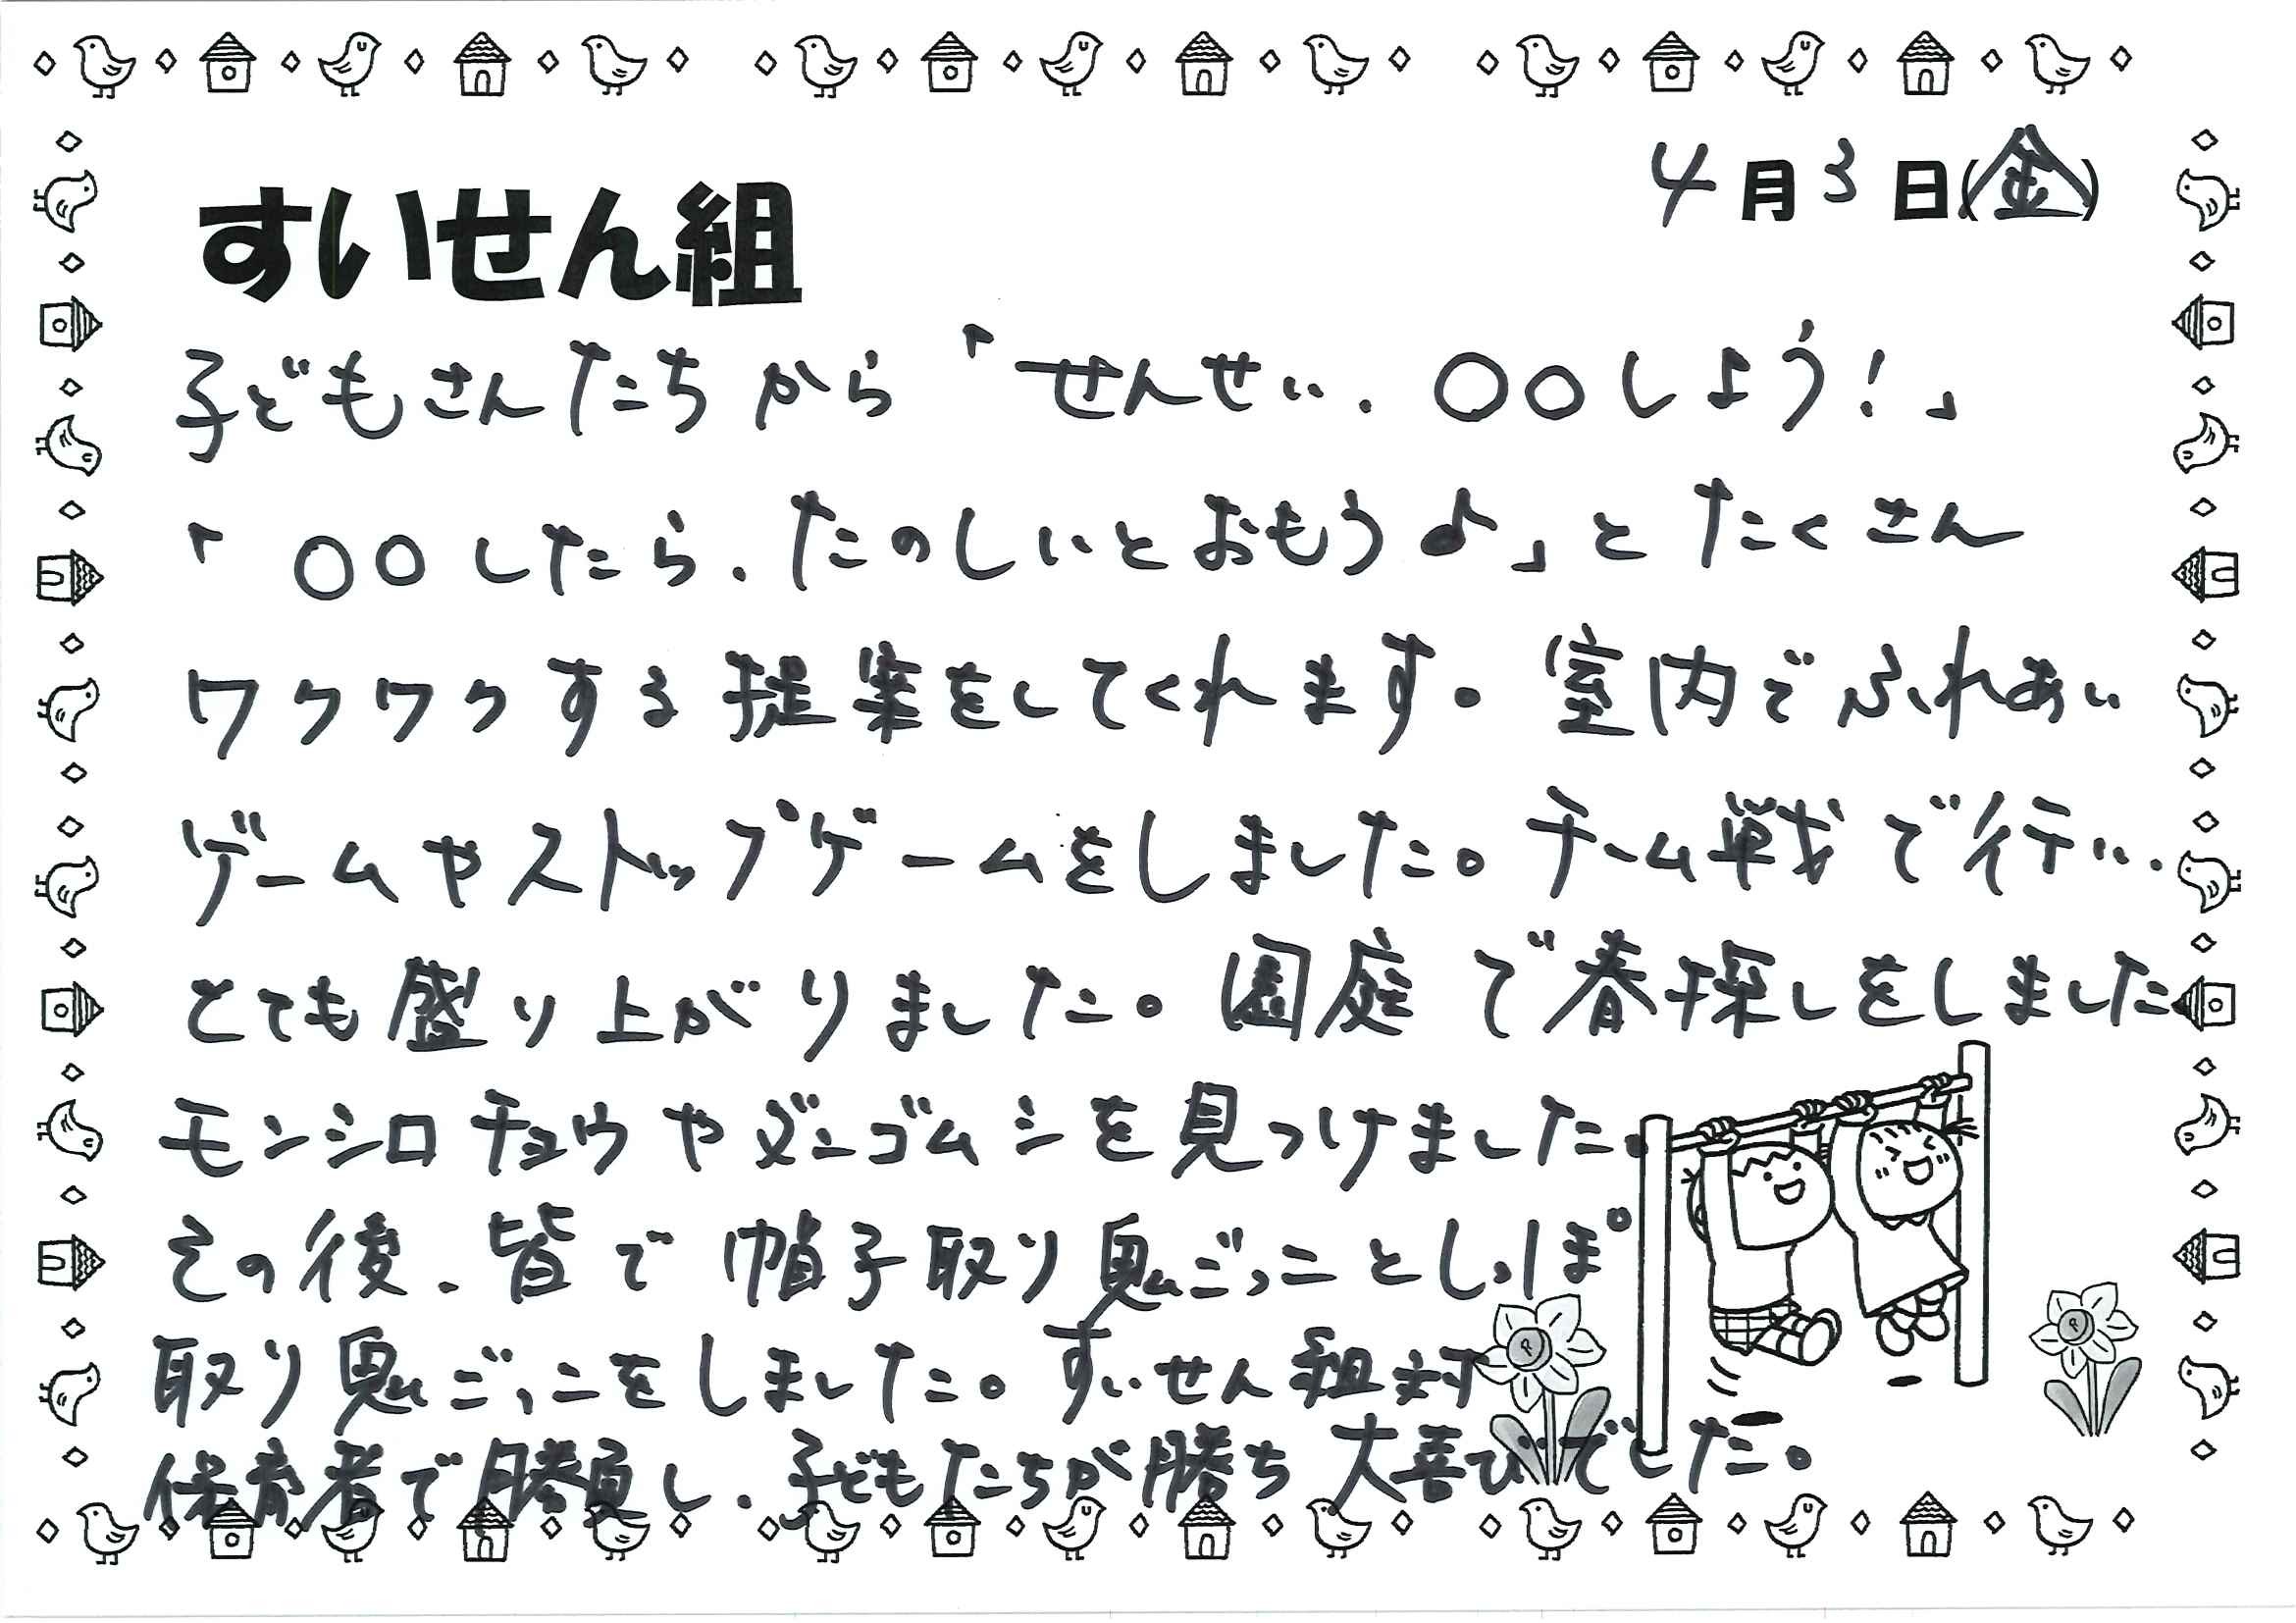 4月3日(金)
すいせん組
子どもさんたちから「せんせい、〇〇しよう！」
「〇〇したら、たのしいとおもう♪」とたくさん
ワクワクする提案をしてくれます。室内でふれあい
ゲームやストップゲームをしました。チーム戦で行い、
とても盛り上がりました。園庭で春探しをしました。
モンシロチョウやダンゴムシを見つけました。
その後、皆で帽子取り鬼ごっことしっぽ
取り鬼ごっこをしました。すいせん組対
保育者で勝負し、子どもたちが勝ち大喜びでした。